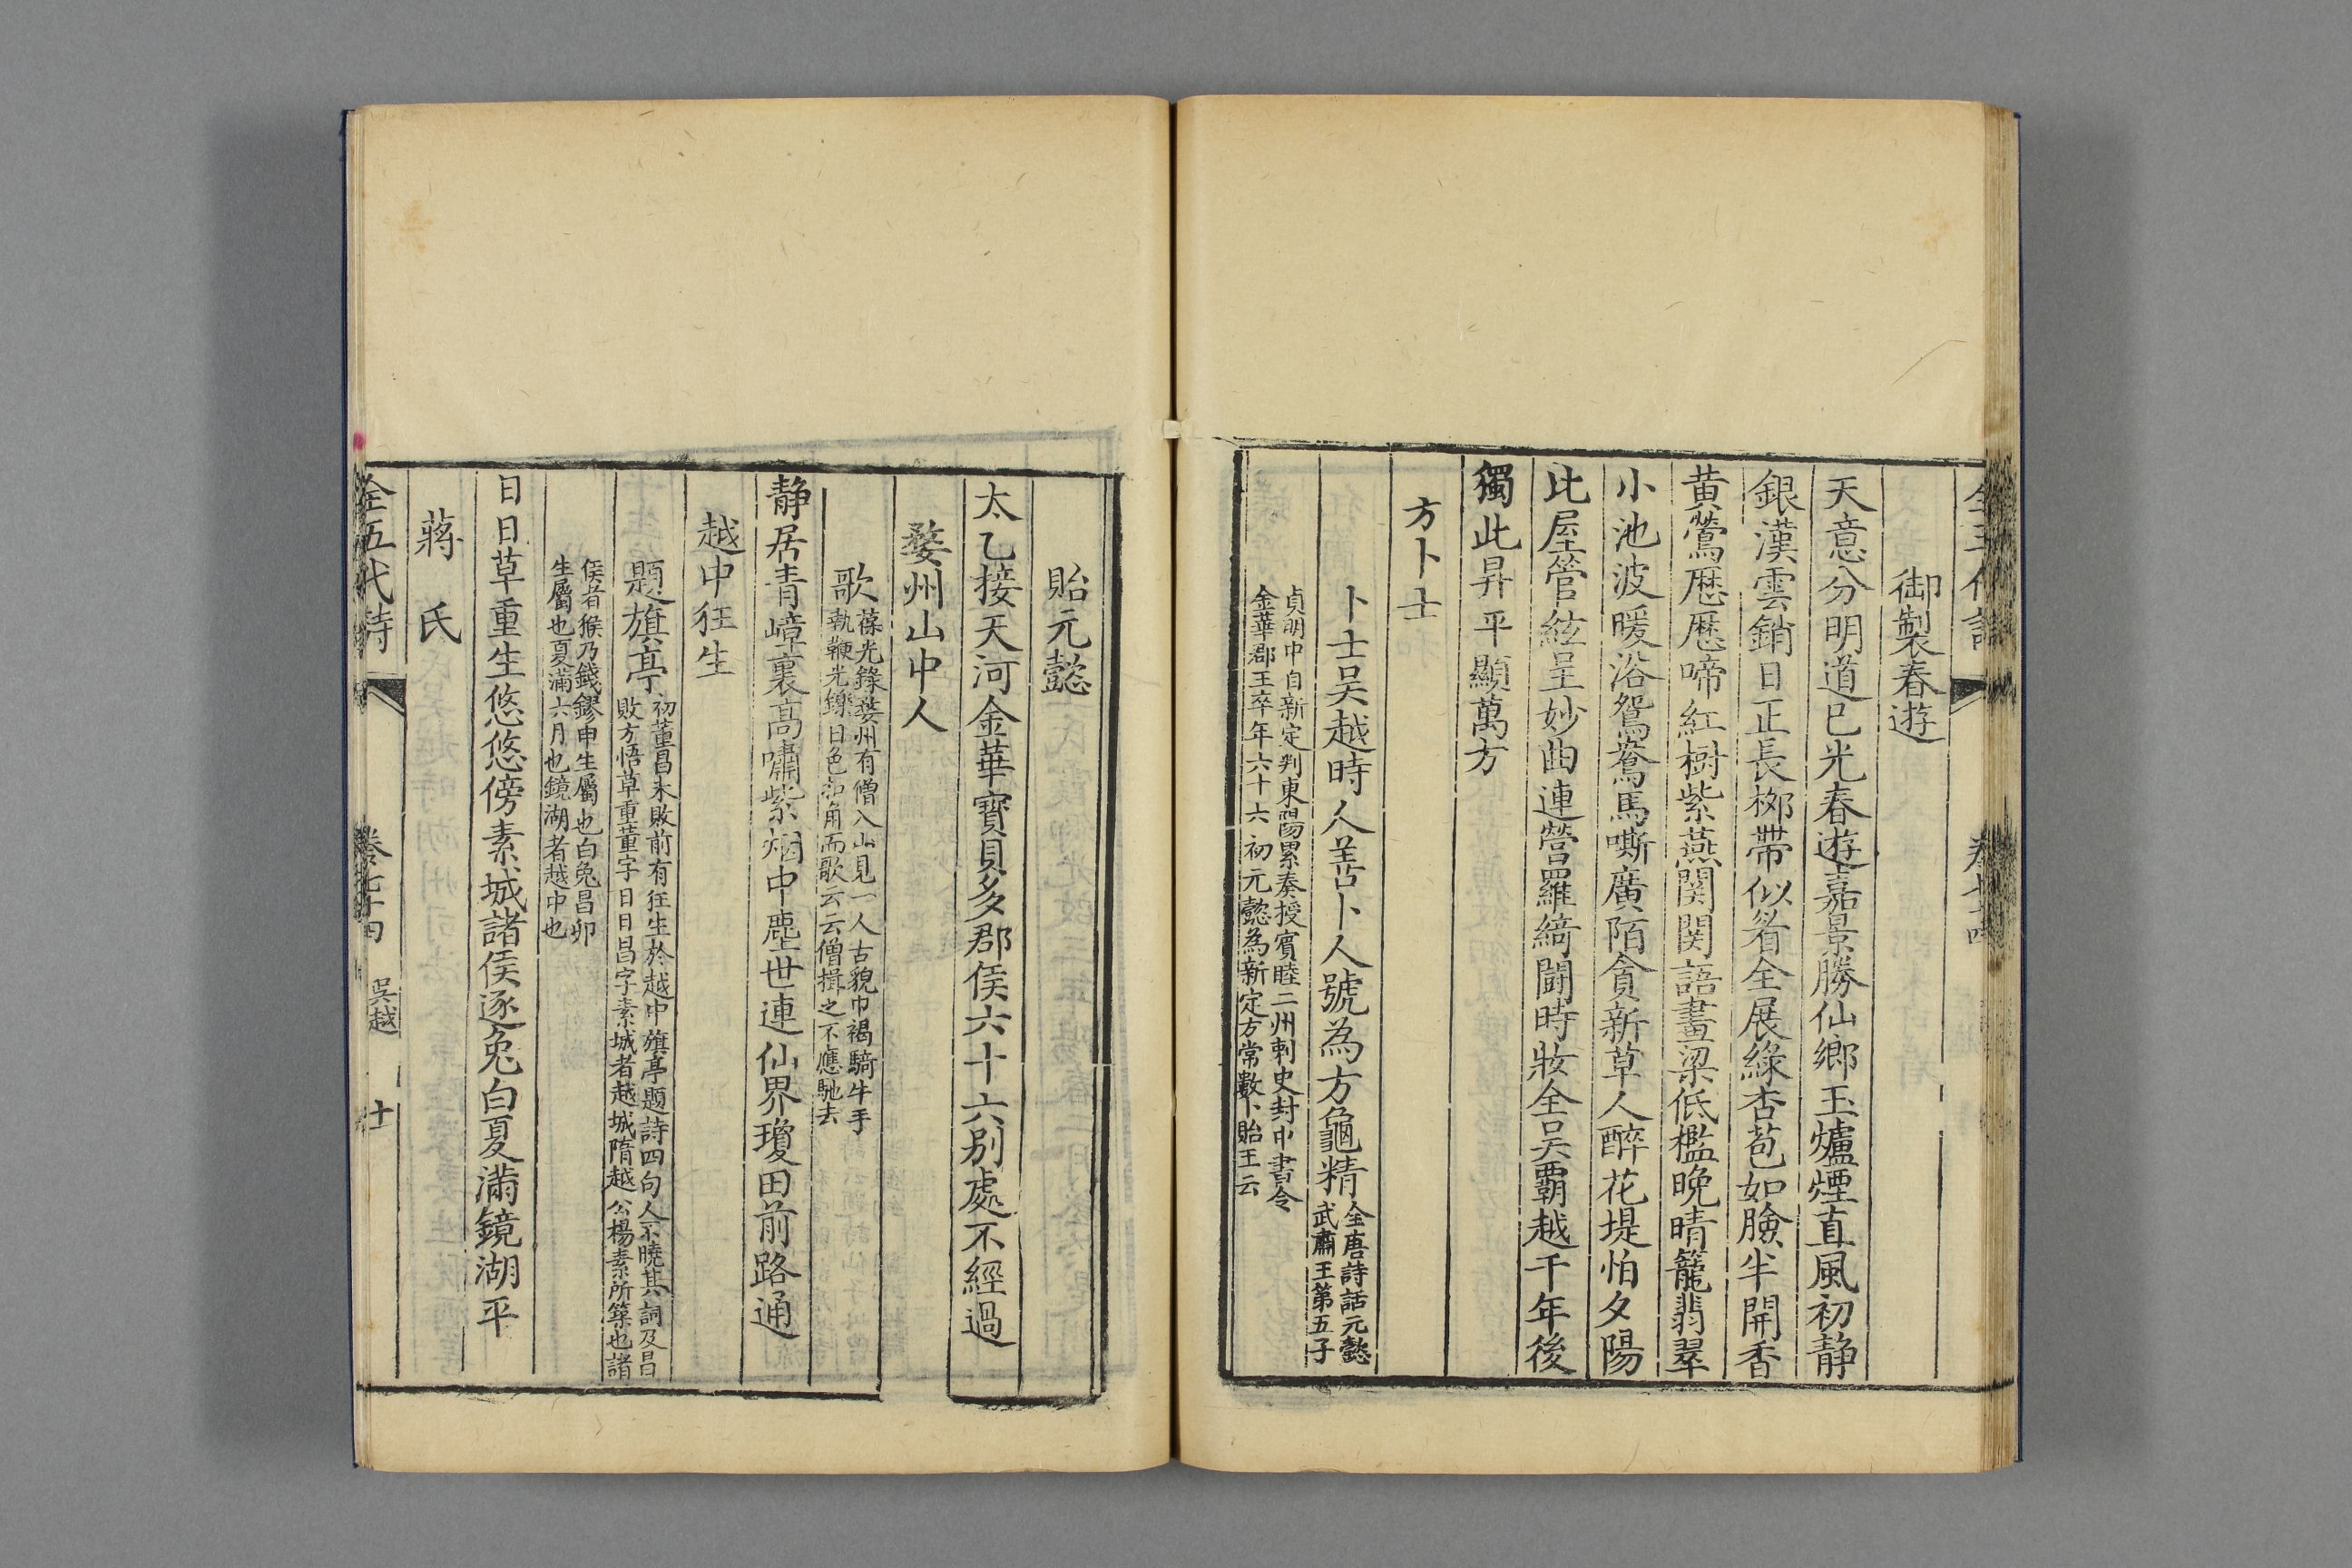 御製春遊
天意分明道已光春遊嘉景勝仙鄉玉爐煙直風初静
銀漢雲銷日正長栁帶似眉全展緑杏苞如臉半開香
黄鶯歴歴啼紅樹紫燕関関語畫梁低檻晚晴籠翡翠
小池波暖浴鴛鴦馬嘶廣陌貪新草人醉花堤怕夕陽
比屋管絃呈妙曲連營羅綺鬪時妝全吴覇越千年後
獨此昇平顯萬方
方卜士
卜士吴越時人善卜人號為方龜精
全唐詩話元懿
武肅王第五子
貞明中自新定判東陽累奏授賓睦二州刺史封中書令
金華郡王卒年六十六初元懿為新定方常數卜貽王云
貽元懿
太乙接天河金華寶貝多郡侯六十六别處不經過
婺州山中人
歌
葆光錄婺州有僧入山見一人古貌巾褐騎牛手
執鞭光鑠日色扣角而歌云云僧揖之不應馳去
静居青嶂裏高嘯紫烟中塵世連仙界瓊田前路通
越中狂生
題旗亭
初董昌未敗前有狂生於越中旗亭題詩四句人不曉其詞及昌
敗方悟草重董字日日昌字素城者越城隋越公楊素所築也諸
侯者猴乃錢鏐申生屬也白兔昌卯
生屬也夏滿六月也鏡湖者越中也
日日草重生悠悠傍素城諸侯逐兔白夏滿鏡湖平
蔣氏
全五代詩
卷七十四
吴越
十